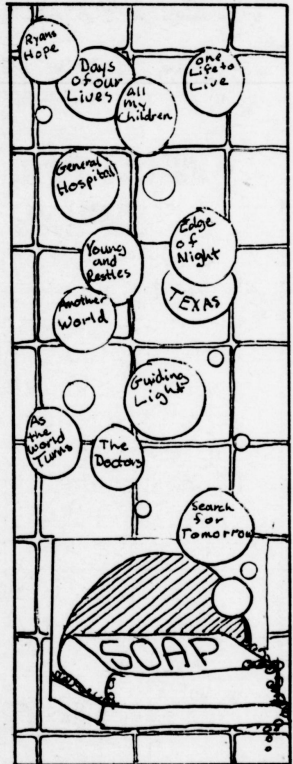 Ryans
Hope
Days
of our
Lives
All
my
Children
one
Life to
Live
General
Hospital
Edge
of
Night
Young
and
Restles
TEXAS
Another
World
Guiding
Light
As
the
World
Turns
The
Doctors
Search
for
Tomorrow
SOAP